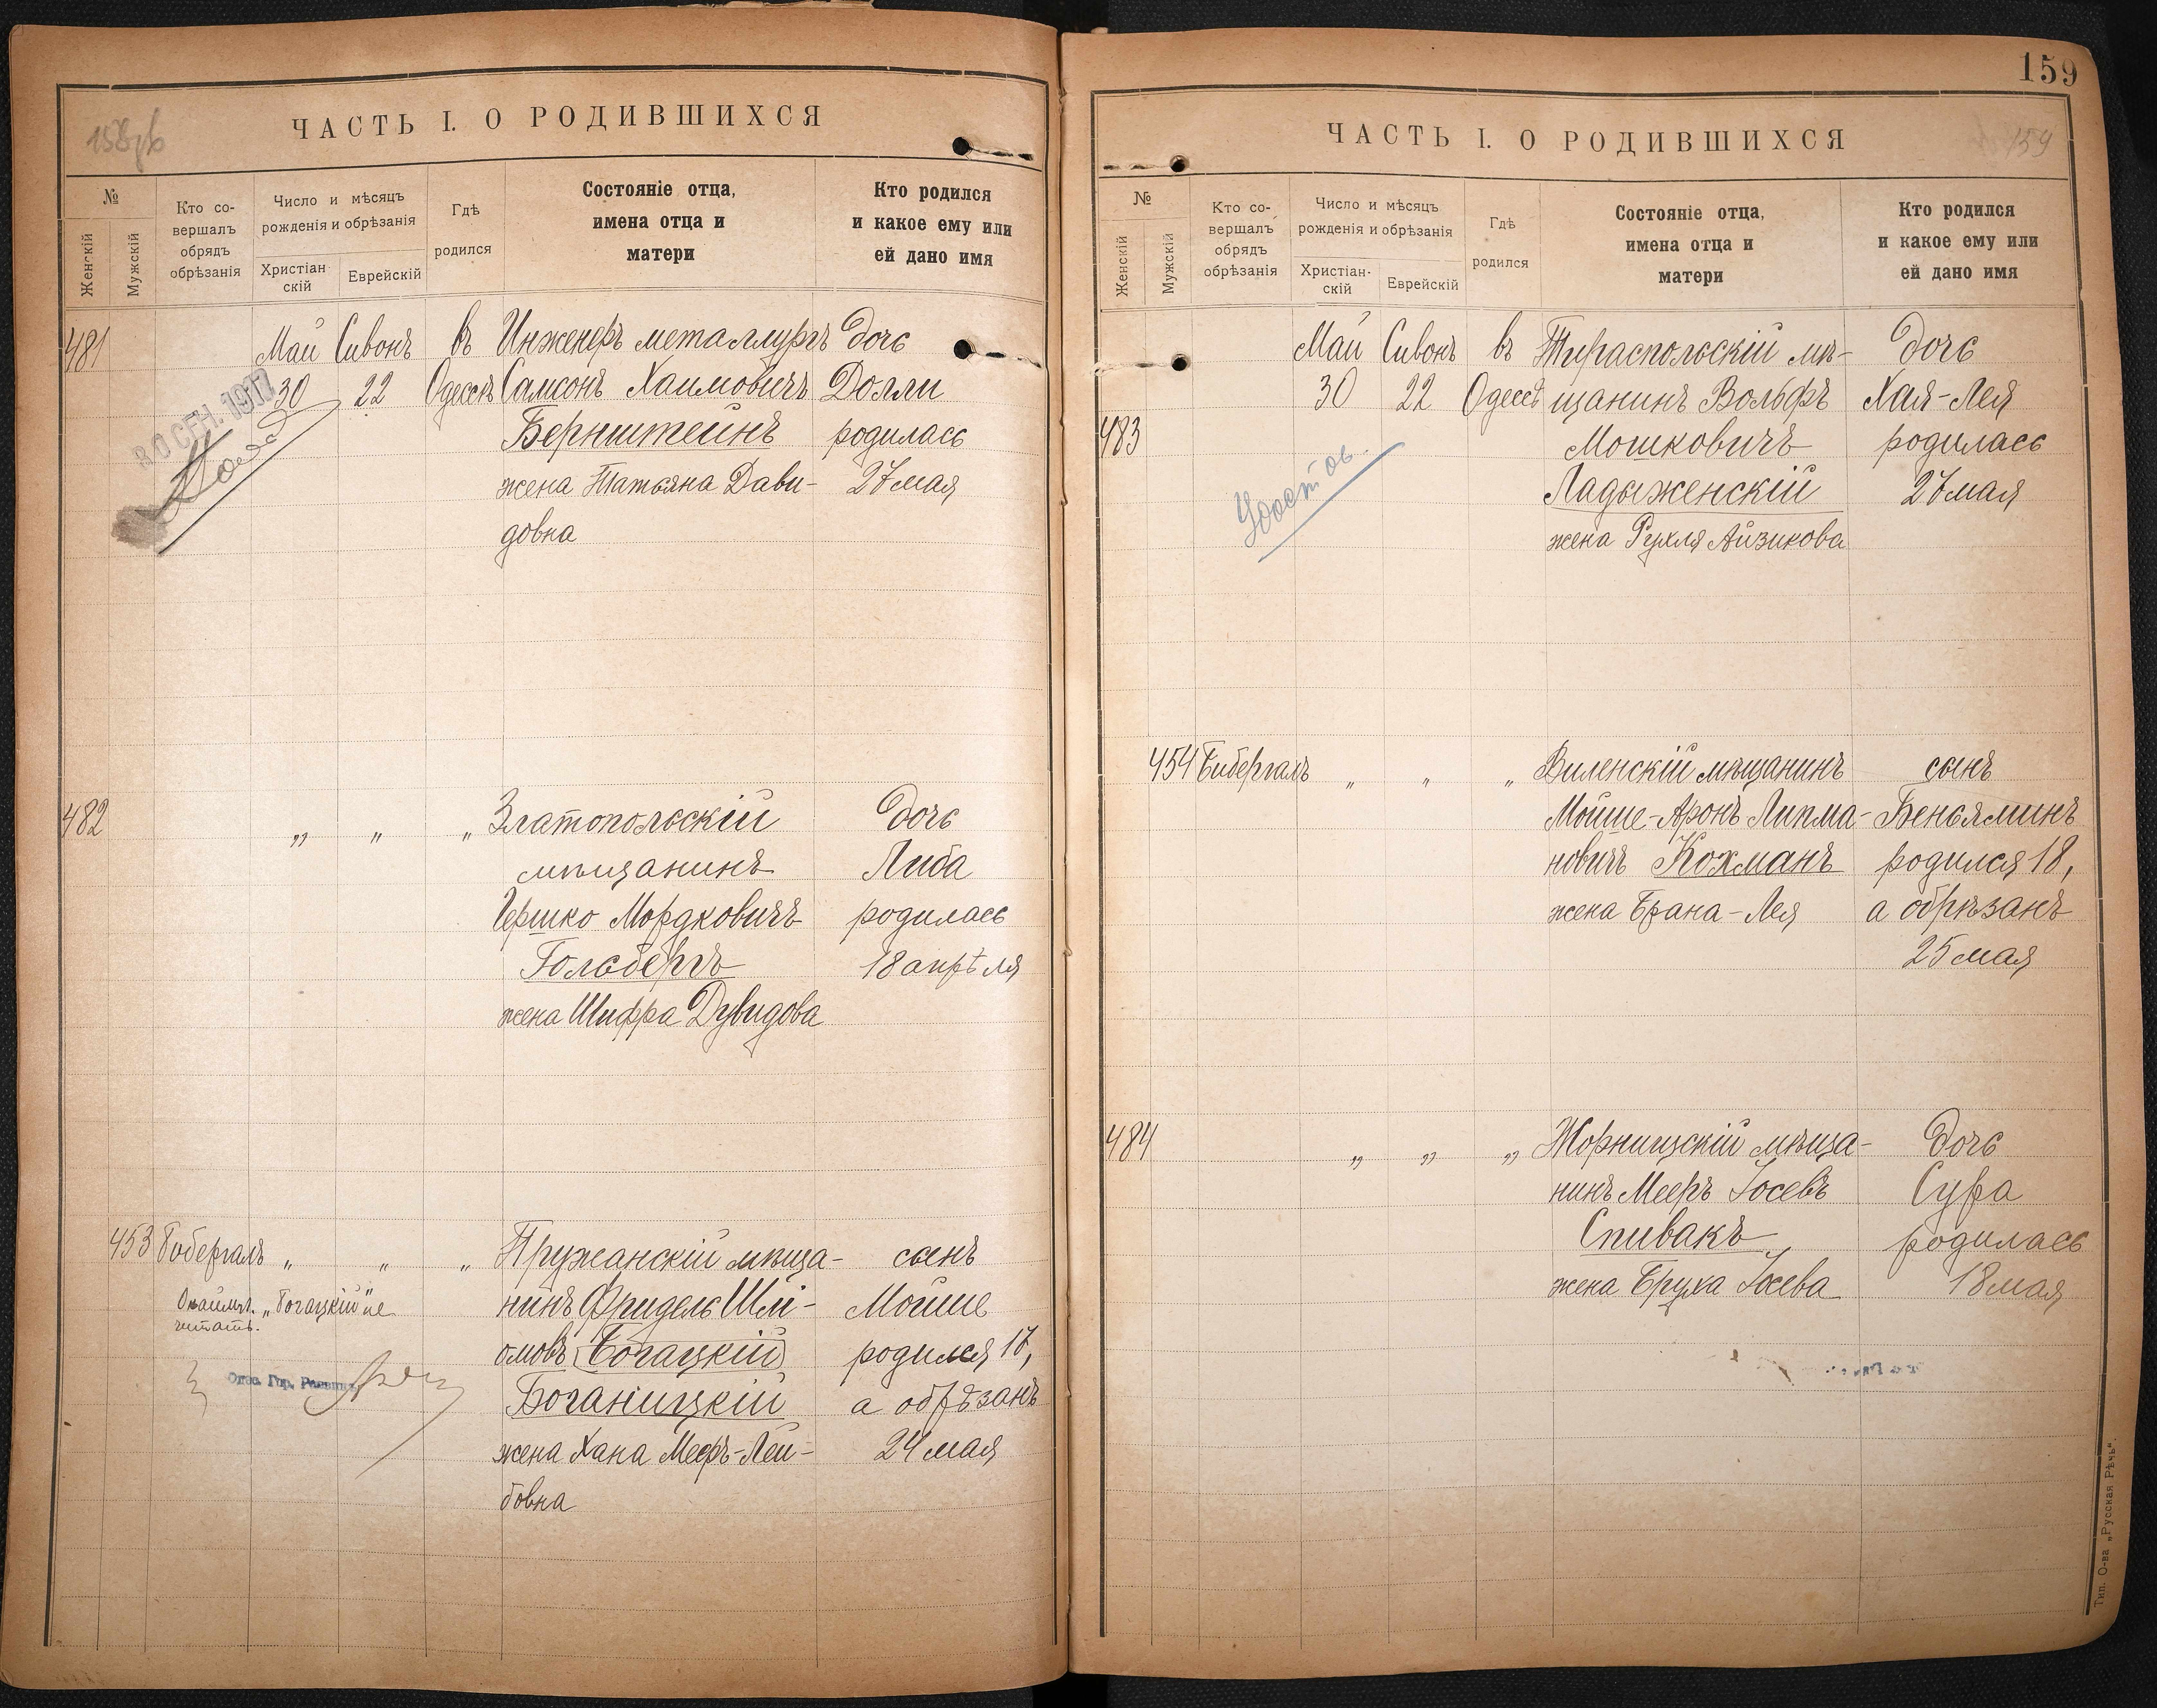 ЧАСТЬ I. О РОДИВШИХСЯ
№
Женскій
Мужскій
Кто со-
вершалъ
обрядъ
обрѣзанія
Число и мѣсяцъ
рожденія и обрѣзанія
Христіан
скій
Еврейскій
Гдѣ
родился
Состояніе отца,
имена отца и
матери
Кто родился
и какое ему или
ей дано имя
481
Май Сивонъ въ Инженеръ металлургъ дочь
30 22 Одессѣ Самсонъ Хаимовичъ Долли
Бернштейнъ родилась
жена Татьяна Дави- 27 мая
довна
30 СЕН. 1917
482
„ „ „ Златопольскій дочь
мѣщанинъ Либа
Гершко Мордковичъ родилась
Гольбергъ 18 апрѣля
жена Шифра Дувидова
453 Гибергалъ „ „ „ Пружанскій мѣща- сынъ
нинъ Фридель Шлі- Мойше
омовъ (Богацкій) родился 17,
Боганицкій а обрѣзанъ
жена Хана Меер-Лей- 24 мая
бовна
„Богацкій" не
читать.
159
ЧАСТЬ I. О РОДИВШИХСЯ
159
№
Женскій
Мужскій
Кто со-
вершалъ
обрядъ
обрѣзанія
Число и мѣсяцъ
рожденія и обрѣзанія
Христіан-
скій
Еврейскій
Гдѣ
родился
Состояніе отца,
имена отца и
матери
Кто родился
и какое ему или
ей дано имя
Май Сивонъ въ Тираспольскій мѣ- дочь
30 22 Одессѣ щанинъ Вольфъ Хая-Лея
483 Мошковичъ родилась
Ладыженскій 27 мая
жена Рухля Айзикова
Удостов.
454 Гибергалъ „ „ „ Виленскій мѣщанинъ сынъ
Мойше-Аронъ Липма- Беньяминъ
новичъ Кохманъ родился 18,
жена Брана-Лея а обрѣзанъ
25 мая
484 „ „ „ Жорнищскій мѣща- дочь
нинъ Мееръ Іосевъ Сура
Спивакъ родилась
жена Бруха Іосева 18 мая
Тип. О-ва „Русская Рѣчь".